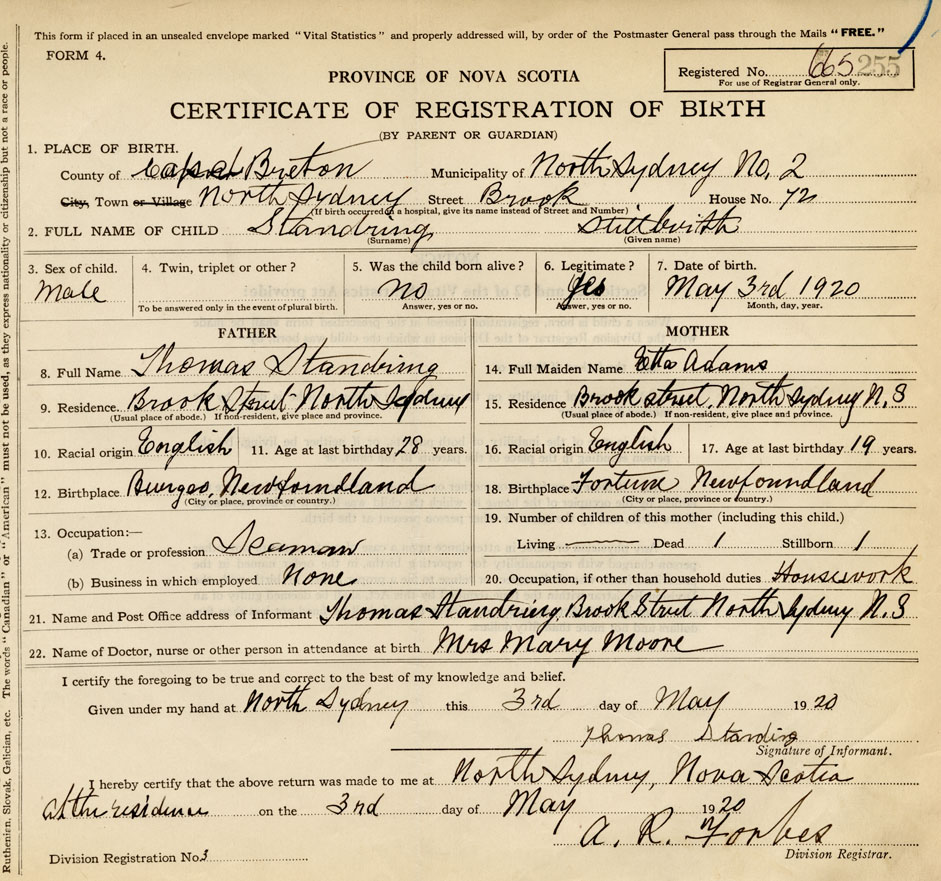 This form if placed in an unsealed envelope marked "Vital Statistics" and properly addressed will, by order of the Postmaster General pass through the Mails "FREE."
FORM 4.
Registered No. 665 255
For use of Registrar General only.
PROVINCE OF NOVA SCOTIA
CERTIFICATE OF REGISTRATION OF BIRTH
(BY PARENT OR GUARDIAN)
1. PLACE OF BIRTH.
County of Cape Breton Municipality of North Sydney No. 2
City, Town or Village North Sydney Street Brook House No. 72
(If birth occurred in a hospital, give its name instead of Street and Number)
2. FULL NAME OF CHILD Standring Stillbirth
(Surname) (Given name)
3. Sex of child. 4. Twin, triplet or other? 5. Was the child born alive? 6. Legitimate? 7. Date of birth.
Male No Yes May 3rd 1920
To be answered only in the event of plural birth. Answer, yes or no. Answer, yes or no. Month, day, year.
FATHER MOTHER
8. Full Name Thomas Standring 14. Full Maiden Name Etta Adams
9. Residence Brook Street North Sydney 15. Residence Brook street, North Sydney N.S
(Usual place of abode.) If non-resident, give place and province. (Usual place of abode.) If non-resident, give place and province.
10. Racial origin English 11. Age at last birthday 28 years. 16. Racial origin English 17. Age at last birthday 19 years.
12. Birthplace Burgeo, Newfoundland 18. Birthplace Fortune Newfoundland
(City or place, province or country.) (City or place, province or country.)
13. Occupation:— 19. Number of children of this mother (including this child.)
(a) Trade or profession Seaman Living Dead 1 Stillborn 1
(b) Business in which employed None 20. Occupation, if other than household duties Housework
21. Name and Post Office address of Informant Thomas Standring Brook Street North Sydney N.S
22. Name of Doctor, nurse or other person in attendance at birth Mrs Mary Moore
I certify the foregoing to be true and correct to the best of my knowledge and belief.
Given under my hand at North Sydney this 3rd day of May 1920
Thomas Standing
Signature of Informant.
I hereby certify that the above return was made to me at North Sydney, Nova Scotia
at the residence on the 3rd day of May 1920
A. R. Forbes
Division Registration No. 3 Division Registrar.
Ruthenien, Slovak, Galician, etc. The words "Canadian" or "American" must not be used, as they express nationality or citizenship but not a race or people.